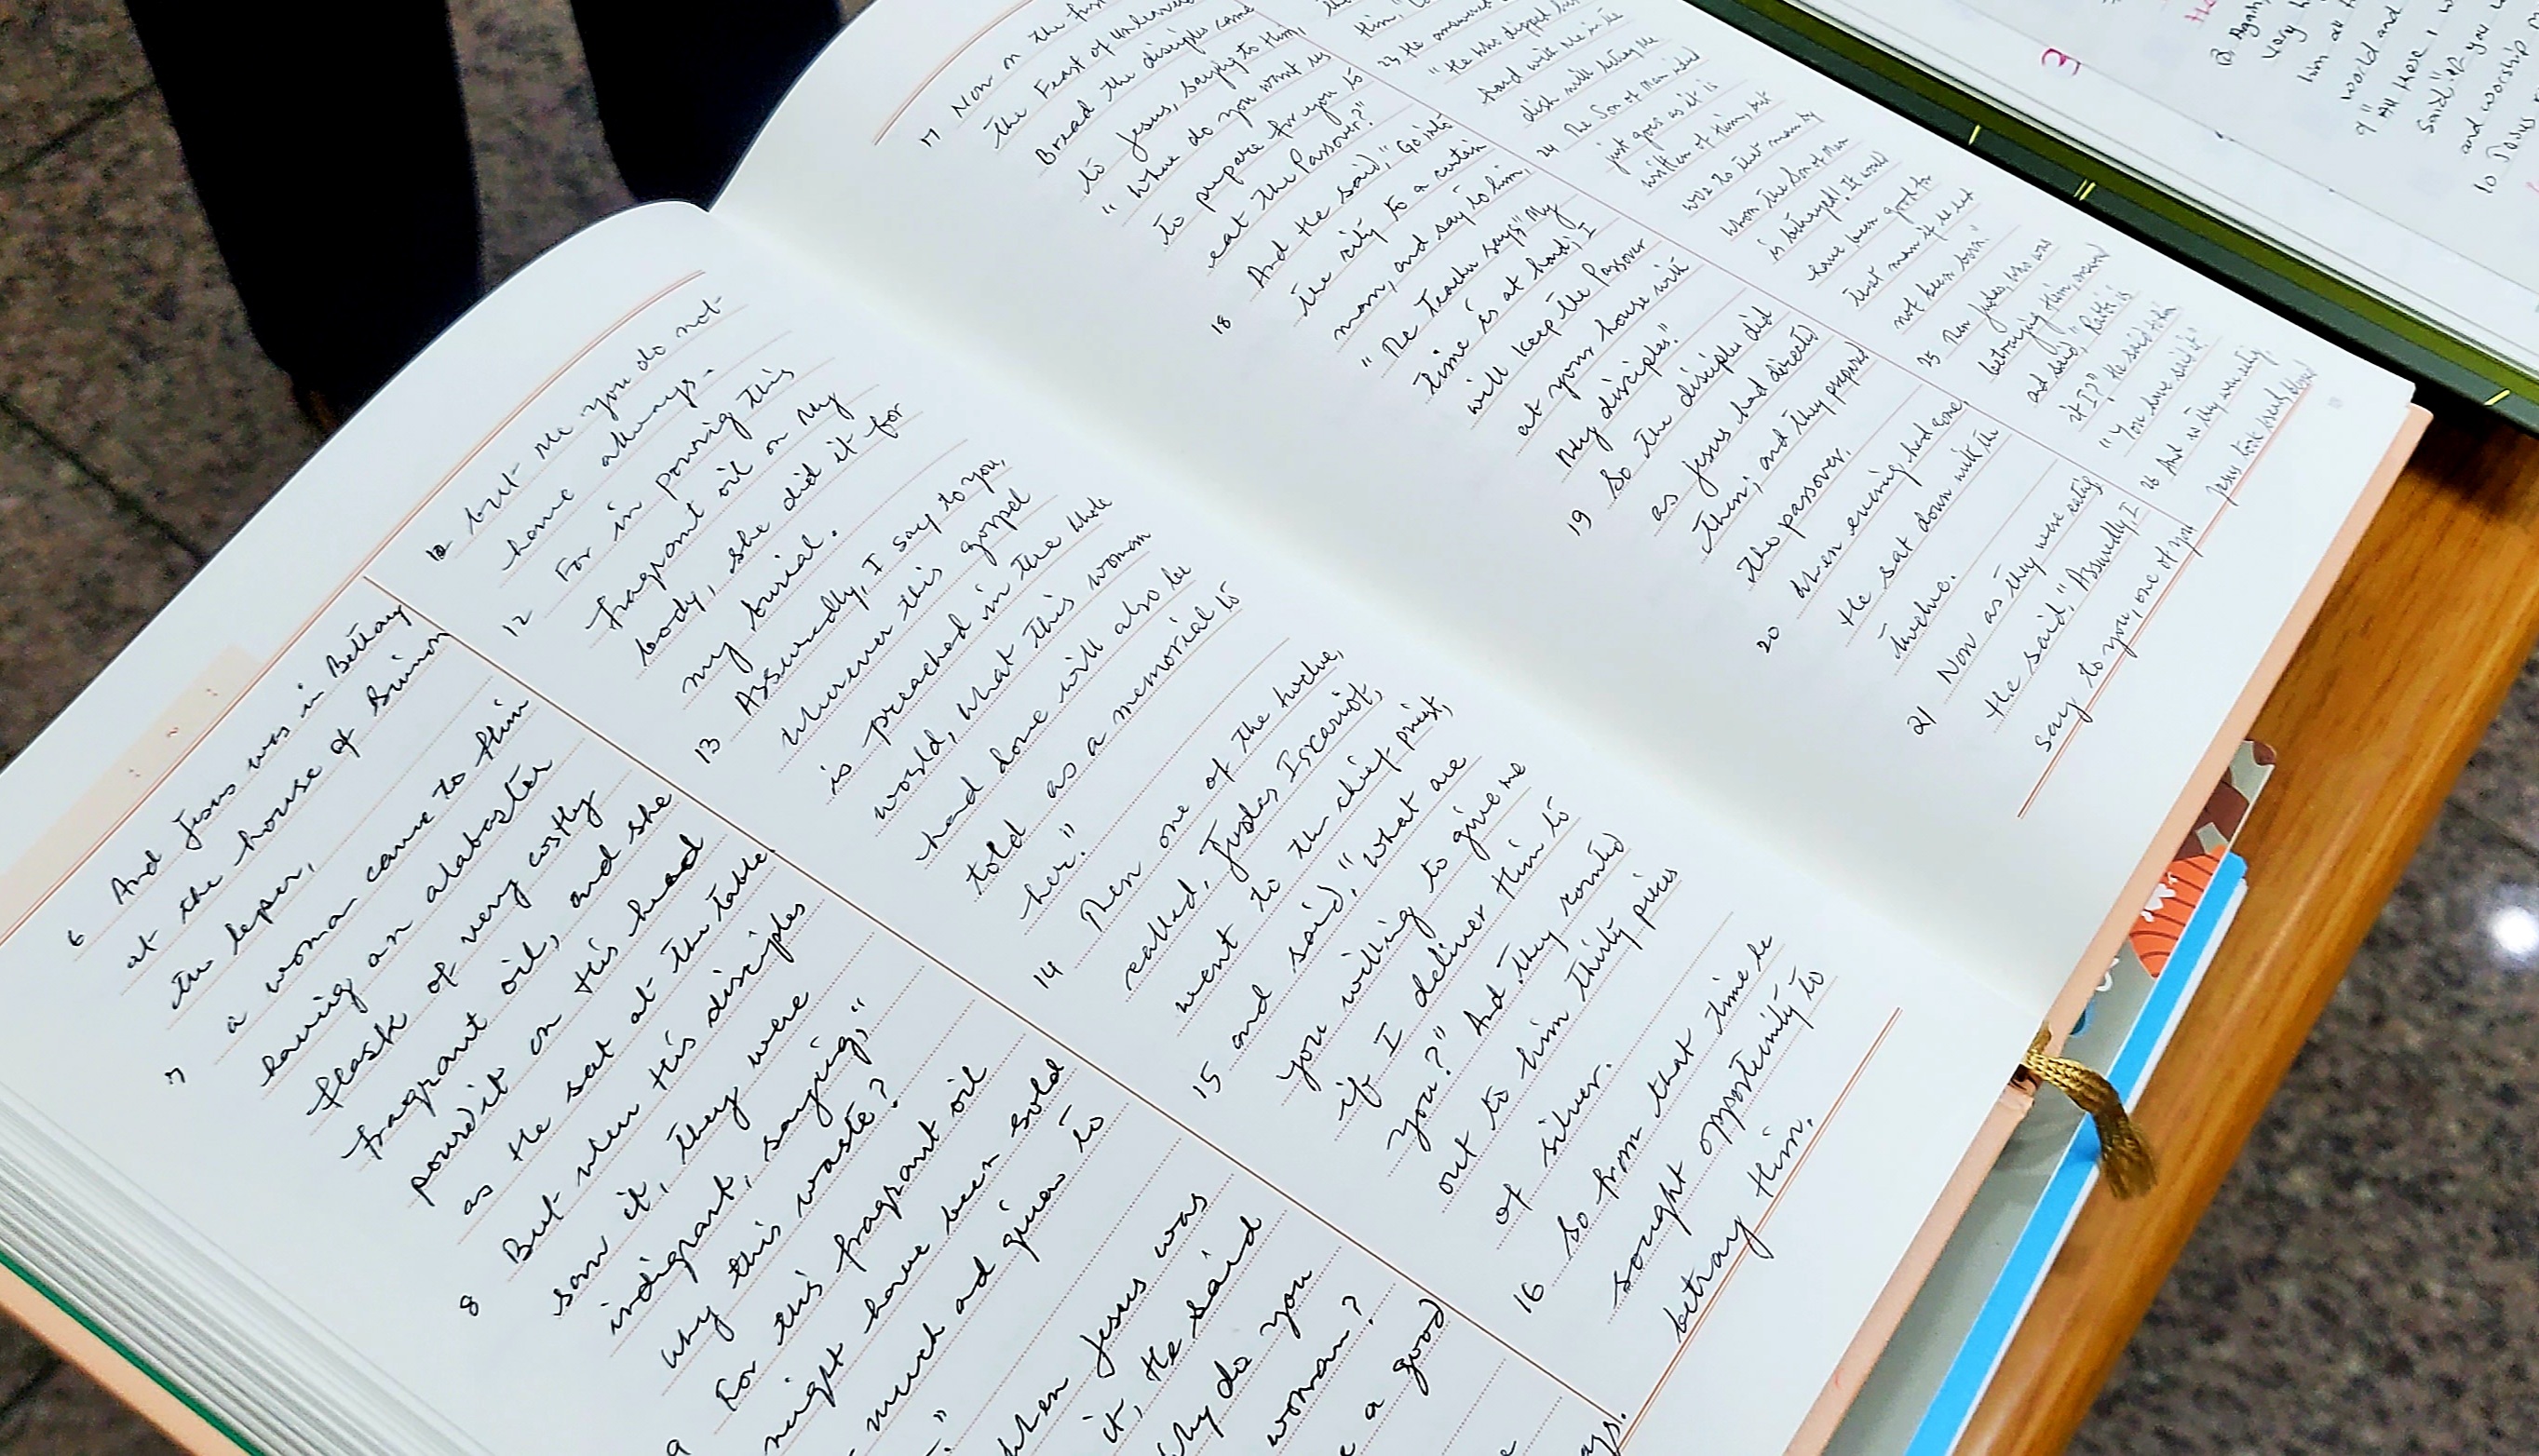 6 And Jesus was in Bethany
at the house of Simon
the leper,
7 a woman came to Him
having an alabaster
flask of very costly
fragrant oil, and she
poured it on His head
as He sat at the table.
8 But when His disciples
saw it, they were
indignant, saying,"
why this waste?
9 For this fragrant oil
might have been sold
much and given to
"
when Jesus was
it, He said
why do you
woman?
a good
but Me you do not
have always.
12 For in pouring this
fragrant oil on My
body, she did it for
my burial.
13 Assuredly, I say to you,
wherever this gospel
is preached in the whole
world, what this woman
had done will also be
told as a memorial to
her."
14 Then one of the twelve,
called, Judas Iscariot,
went to the chief priest,
15 and said, "What are
you willing to give me
if I deliver Him to
you?" And they counted
out to him thirty pieces
of silver.
16 So from that time he
sought opportunity to
betray Him.
17 Now on the first
the Feast of Unleavened
Bread the disciples came
to Jesus, saying to Him,
"Where do you want us
to prepare for you to
eat the Passover?"
18 And He said, "Go into
the city to a certain
man, and say to him,
"The Teacher says," My
time is at hand; I
will keep the Passover
at your house with
My disciples."
19 So the disciples did
as Jesus had directed
them; and they prepared
the passover.
20 When evening had come,
He sat down with the
twelve.
21 Now as they were eating
He said, "Assuredly, I
say to you, one of you
Him,
23 He answered
"He who dipped his
hand with Me in the
dish will betray Me
24 The Son of Man indeed
just goes as it is
written of Him, but
woe to that man by
whom the Son of Man
is betrayed! It would
have been good for
that man if he had
not been born."
25 Then Judas, who was
betraying Him, answered
and said, "Rabbi is
it I?" He said to him
"You have said it."
26 And as they were eating
Jesus took bread, blessed
3
8. Again,
very
him all
world and
9 "All these I
said "if you
and worship
10 Jesus